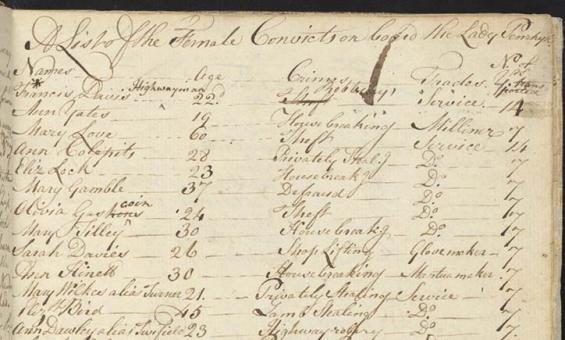 A List of the Female Convicts on board the Lady Penrhyn
Names Age Crimes Trades No of
Yrs transported
Francis Davis Highwayman 22 Theft robbery Service 14
Ann Yates 19 Housebreaking Milliner 7
Mary Love 60 Theft Service 14
Ann Colepits 28 Privately Stealg Do 7
Eliz Lock 23 Housebreakg Do 7
Mary Gamble 37 Defraud Do 7
Olivia Gascoin 24 Theft Do 7
Mary Tilley 30 Housebreakg Do 7
Sarah Davies 26 Shop lifting Glovemaker 7
Ann 30 Housebreaking Mantua maker 7
Mary Wickes alias Turner 21 Privately Stealing Service 7
Elizth Bird 45 Lamb Stealing Do 7
Ann Dawley alias Twifield 23 Highway robery Do 7